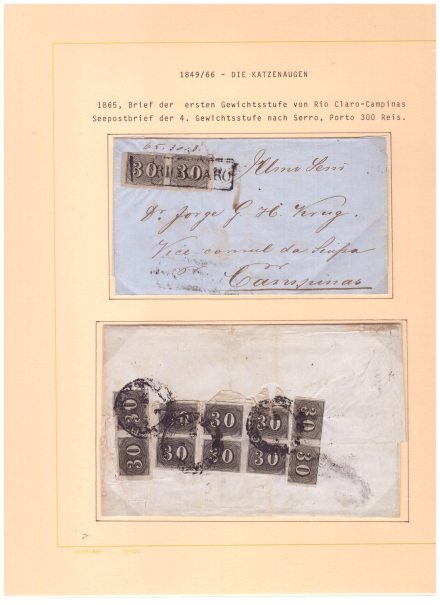 1849/66 - DIE KATZENAUGEN
1865, Brief der ersten Gewichtsstufe von Rio Claro-Campinas
Seepostbrief der 4. Gewichtsstufe nach Serro, Porto 300 Reis.
30 30
Illmo Senr
Dr. Jorge G. H. Krug.
Vice consul da Suissa
Campinas
30 30 30 30
30 30 30 30 30